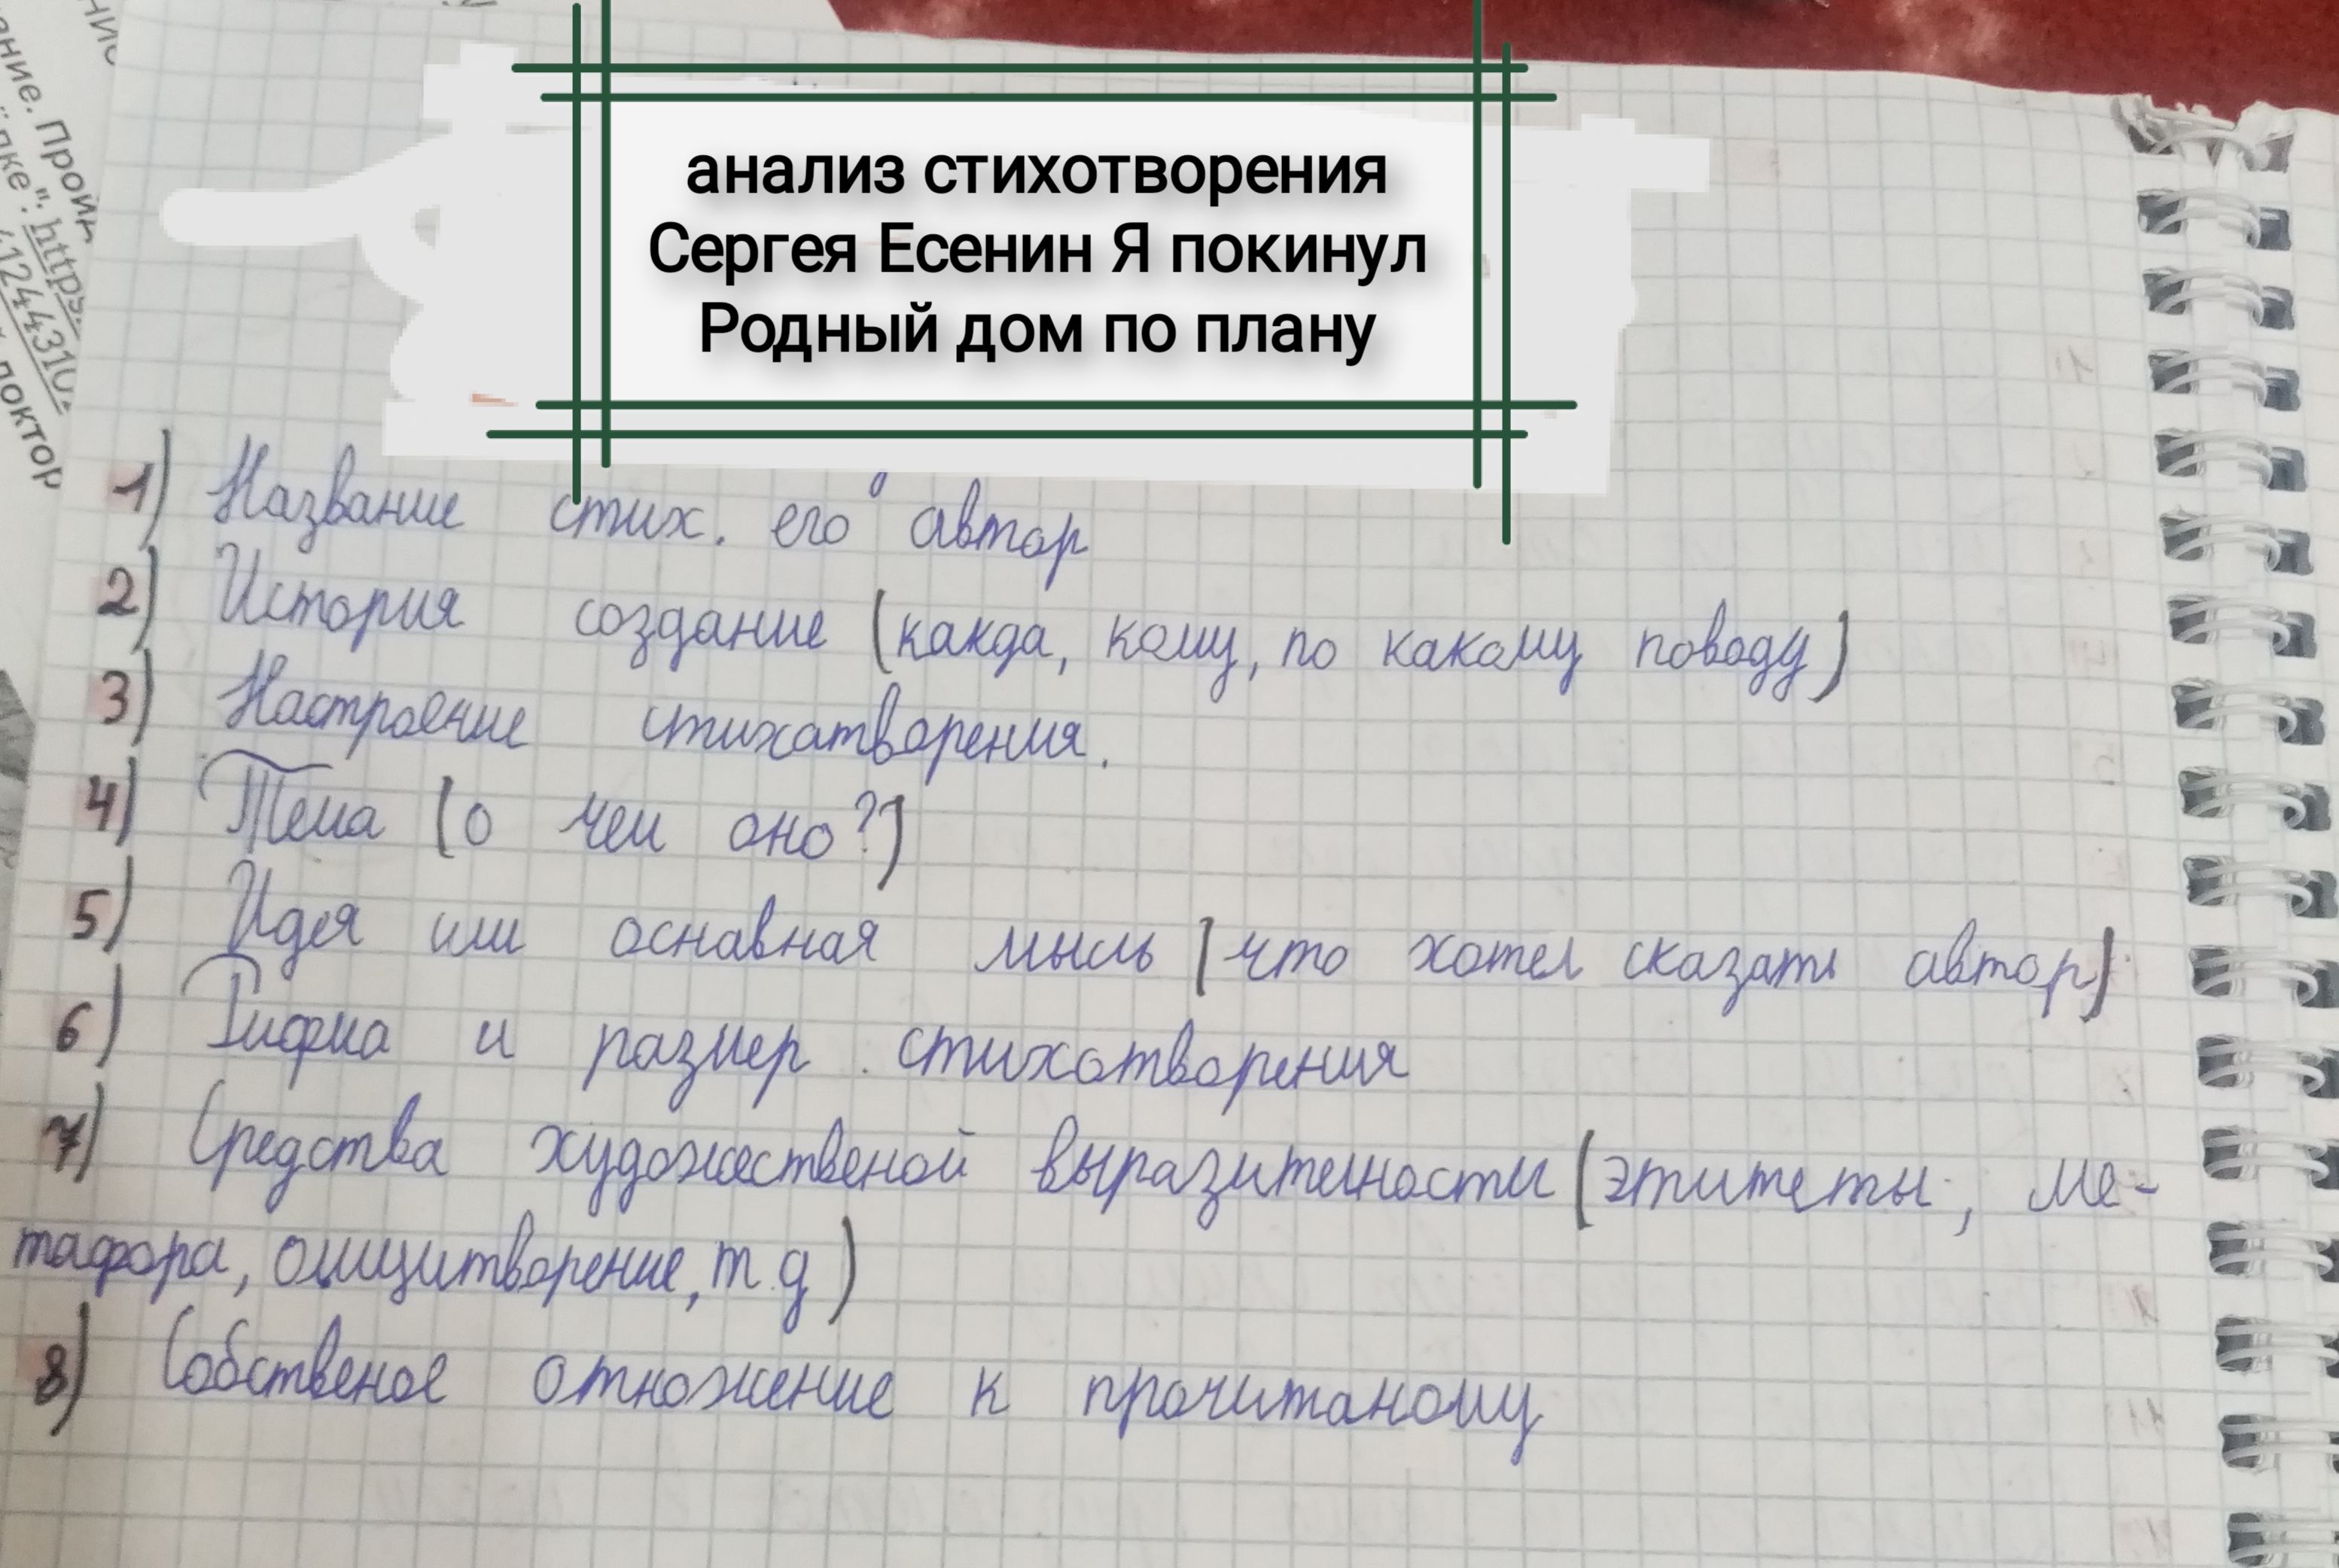 анализ стихотворения
Сергея Есенин Я покинул
Родный дом по плану
1) Название стих. его автор
2) История создание (какда, кому, по какому поводу)
3) Настроение стихатворения.
4) Тема (о чем оно?)
5) Идея или оснавная мысль (что хотел сказать автор)
6) Рифма и размер стихотворения
7) Средства художественой выразителности (этитеты, ме-
тафора, олицитворение, т.д)
8) Собственое отножение к прочитаному